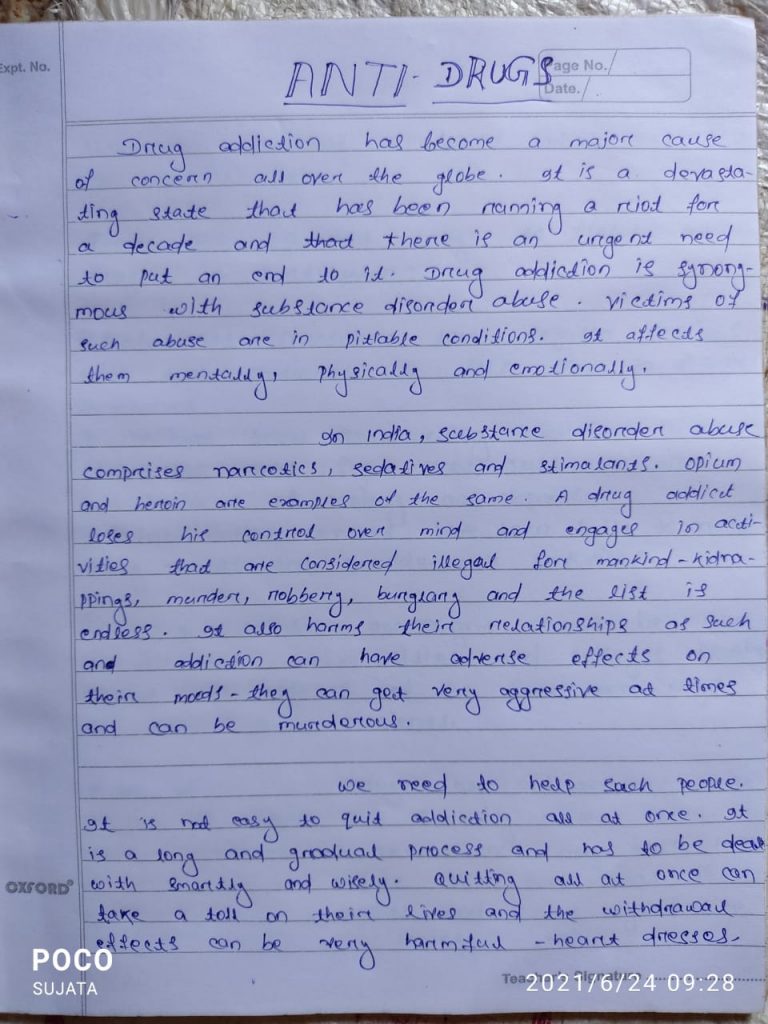 Expt. No.
ANTI-DRUGS
Page No.
Date.
Drug addiction has become a major cause
of concern all over the globe. It is a devasta-
ting state that has been running a riot for
a decade and that there is an urgent need
to put an end to it. Drug addiction is synony-
mous with substance disorder abuse. Victims of
such abuse are in pitiable conditions. It affects
them mentally, physically and emotionally.
In India, substance disorder abuse
comprises narcotics, sedatives and stimalants. Opium
and heroin are examples of the same. A drug addict
loses his control over mind and engages in acti-
vities that are considered illegal for mankind-kidna-
ppings, murder, robbery, burglary and the list is
endless. It also harms their relationships as such
and addiction can have adverse effects on
their moods-they can get very aggressive at times
and can be murderous.
We need to help such people.
It is not easy to quit addiction all at once. It
is a long and gradual process and has to be dealt
with smartly and wisely. Quitting all at once can
take a toll on their lives and the withdrawal
effects can be very harmful - heart dresses.
OXFORD
Teacher's Signature
POCO
SUJATA
2021/6/24 09:28